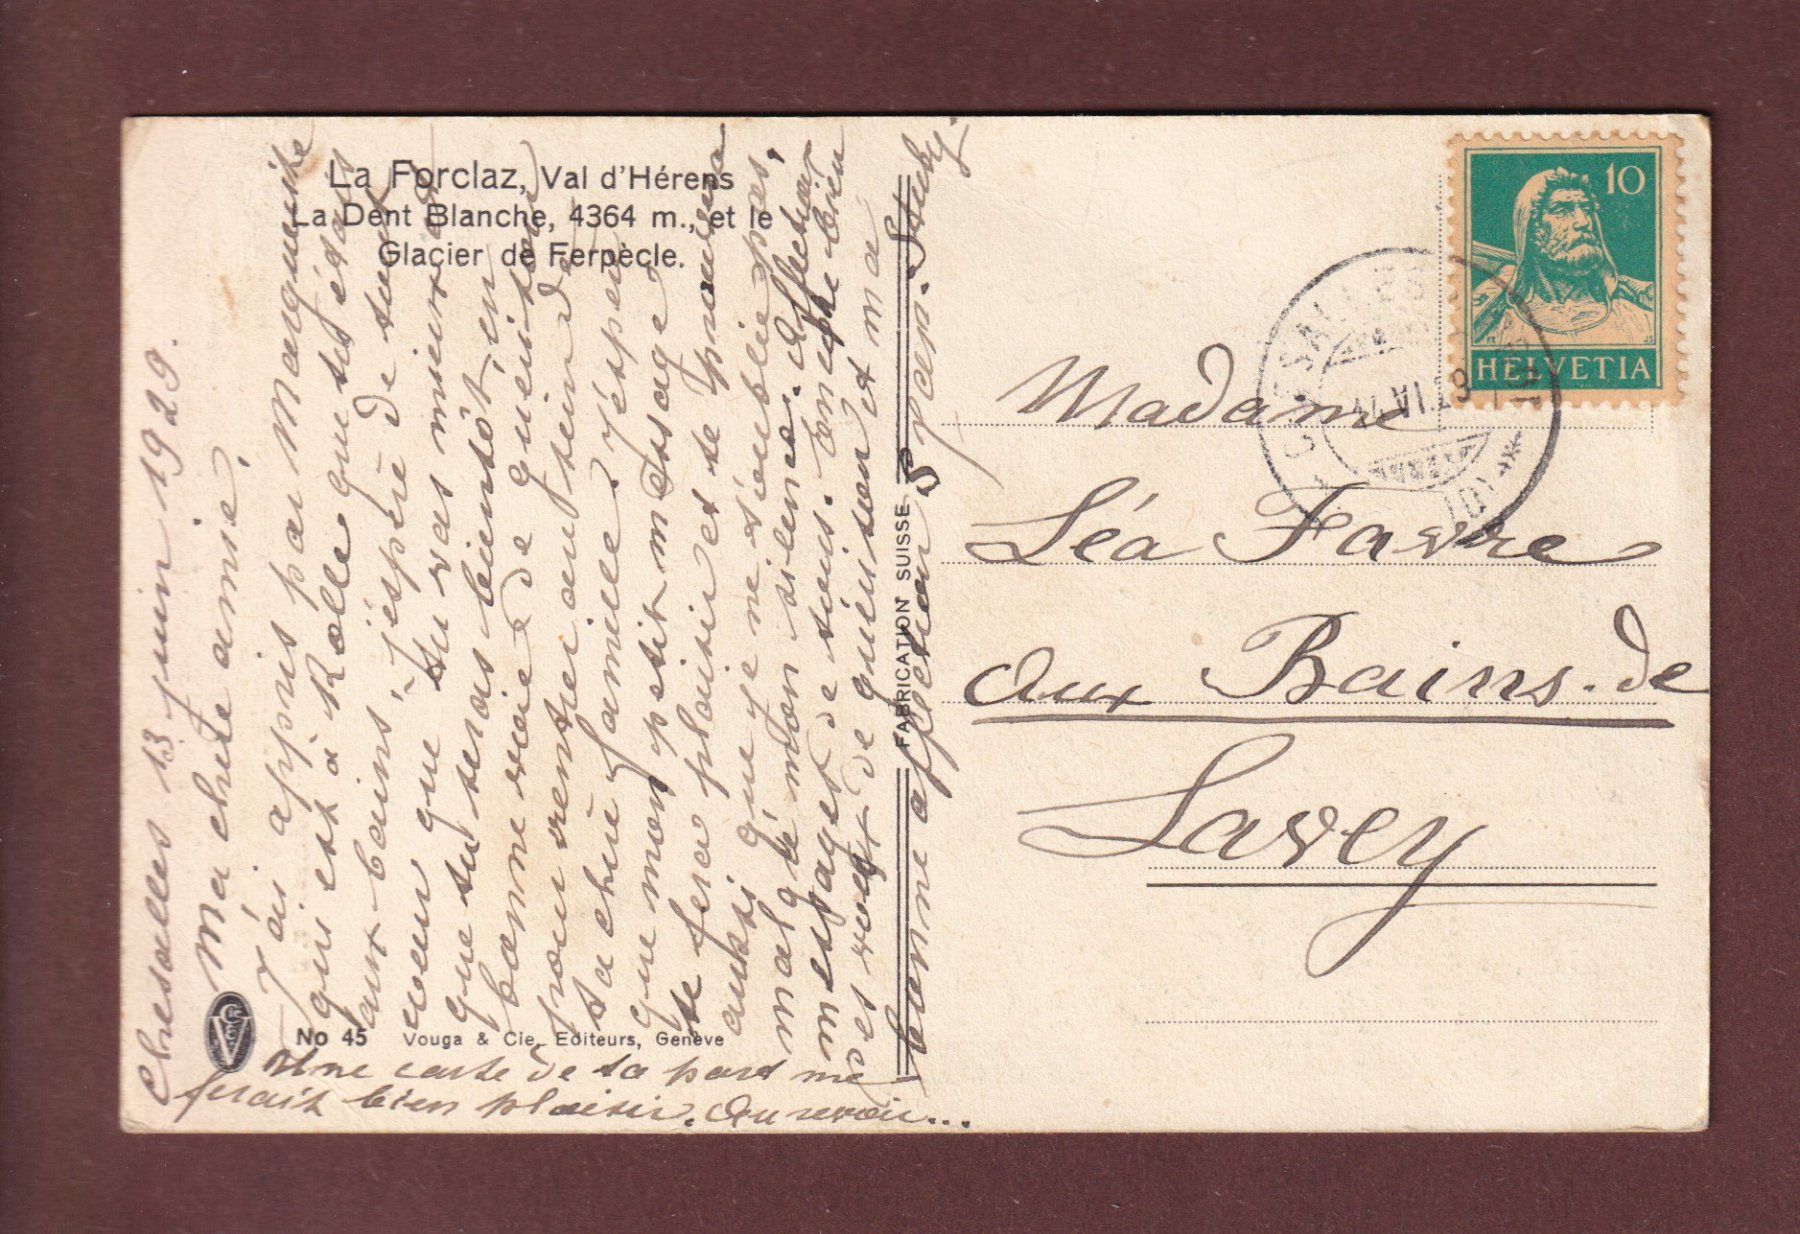 La Forclaz, Val d'Hérens
La Dent Blanche, 4364 m., et le
Glacier de Ferpècle.
Chesalles 13 juin 1929.
Ma chère amie,
J'ai appris par Marguerite
qui est à Rolle que tu étais
aux bains, j'espère de tout
cœur que tu vas mieux et
que tu seras bientôt en
bonne voie de guérison
pour rentrer au sein de
ta chère famille. J'espère
que mon petit message
te fera plaisir et te prouvera
aussi que je ne t'oublie pas,
malgré mon silence. Affectueux
messages de tous. Tempête bien
des vœux de guérison et ma
bonne affection S Jean-Study.
Une carte de ta part me
ferait bien plaisir. Au revoir...
No 45 Vouga & Cie, Editeurs, Genève
FABRICATION SUISSE
10
HELVETIA
CHESALLES
Madame
Léa Favre
aux Bains. de
Lavey